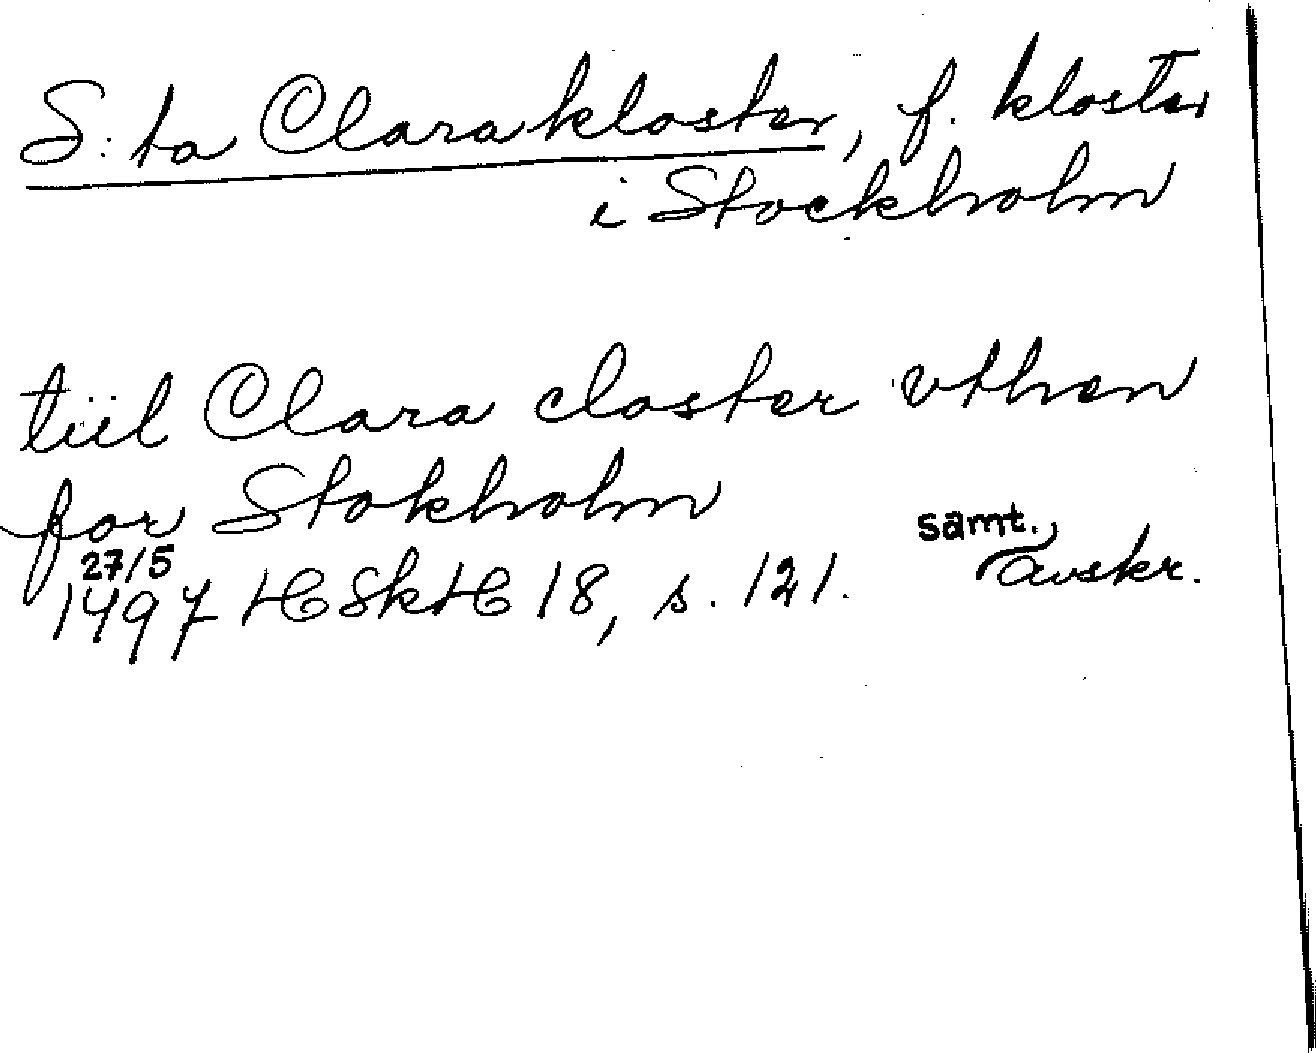 S:ta Clara kloster, f. kloster
i Stockholm
tiil Clara closter vthen
for Stokholm
27/5 samt.
1497 HSkH 18, s. 121. avskr.